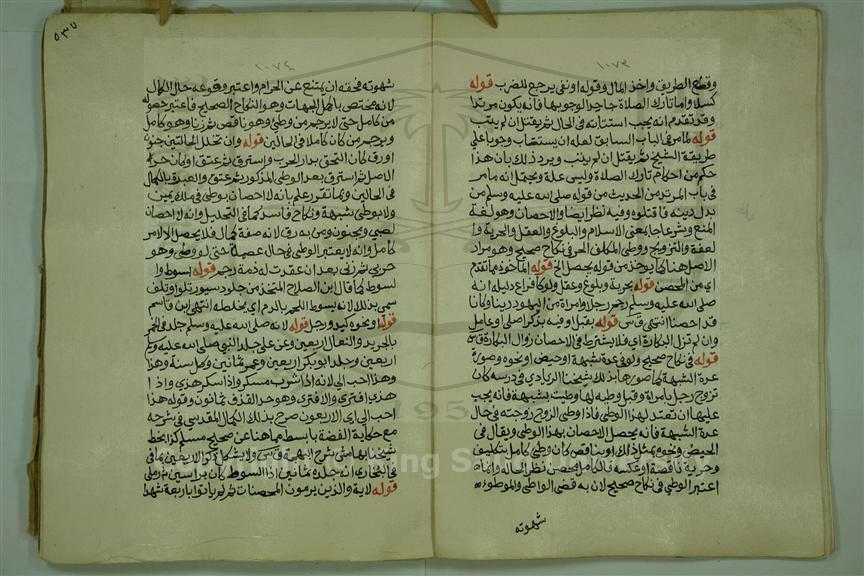 ١٠٧٣
وقطع الطريق واخذ المال وقوله او نفى يرجع للضرب قوله
كسلا واما تارك الصلاة جاحد الوجوبها فانه يكون مرتدا
وقد تقدم انه يجب استتابته في الحال ثم يقتل ان لم يتب
قوله لما مر في الباب السابق لعله ان يستتاب وجوبا على
طريقة الشيخ ثم يقتل ان لم يتب ويرد ذلك بان هذا
حكم من احكام تارك الصلاة وليس علة ويحتمل انه ما مر
في باب المرتد من الحديث من قوله صلى الله عليه وسلم من
بدل دينه فاقتلوه وفيه نظر ايضا والاحصان وهو لغة
المنع وشرعا جا بمعنى الاسلام والبلوغ والعقل والحرية و
العفة والتزويج ووطئ المكلف الحر في نكاح صحيح وهو مراد
الاصل هنا كما يوخذ من قوله يحصل الخ قوله الماخوذ مما تقدم
اي من المحصن قوله بحرية وبلوغ وعقل ولو كافرا دليله انه
صلى الله عليه وسلم رجم رجلا وامراة من اليهود زنيا وكانا
قد احصنا انتهى قوله بقبل وفيه بذكر اصلي او عامل
وان لم تزل البكارة اي فلا يشترط في الاحصان زوال البكارة
قوله في نكاح صحيح ولو في عدة شبهة او حيض او نحوه وصورة
عدة الشبهة كما صورها بذلك شيخنا الزيادي في درسه كان
تزوج رجل بامراة وقبل وطيه لها وطيت بشبهة فانه يجب
عليها ان تعتد لهذا الوطئ فاذا وطئ الزوج زوجته في حال
عدة الشبهة فانه يحصل الاحصان بهذا الوطئ ويقال في
الحيض ونحوه بمثل ذلك او بناقص كان وطئ كامل بتكليف
وحرية ناقصة او عكسه فالكامل محصن نظرا لحاله وانما
اعتبر الوطئ في نكاح صحيح لان به قضى الواطئ والموطوءة
شهوته
٥٣٧
١٠٧٤
شهوته فحقه ان يمتنع عن الحرام واعتبر وقوعه حال الكمال
لانه مختص باكمل الجهات وهو النكاح الصحيح فاعتبر حصوله
من كامل حتى لا يرجم من وطئ وهو ناقص ثم زنا وهو كامل
ويرجم من كان كاملا في الحالين قوله وان تخلل الحالتين جنون
اورق كان التحق بدار الحرب واسترق ثم عتق او كان حرا
الاصل ثم استرق بعد الوطئ المذكور ثم عتق والعبرة بالكمال
في الحالين وبما تقرر علم بانه لا احصان بوطئ في ملك يمين
ولا بوطئ شبهة ونكاح فاسد كما في التحليل وانه لا احصان
لصبي ومجنون ومن به رق لانه صفة كمال فلا يحصل الا من
كامل وانه لا يعتبر الوطئ في حال عصمة حتى لو وطئ وهو
حربي ثم زنى بعد ان عقدت له ذمة رجم قوله بسوط وا
لسوط كما قال ابن الصلاح المتخذ من جلود سيور تلوا وتلف
سمي بذلك لانه يسوط اللحم بالدم اي يخلطه انتهى ابن قاسم
قوله ونحوه كيد ورجل قوله لانه صلى الله عليه وسلم جلد في الخمر
بالجريد والنعال اربعين وعن علي جلد النبي صلى الله عليه وسلم
اربعين وجلد ابو بكر اربعين وعمر ثمانين وكل سنة وهذا
وهذا احب الي لانه اذا شرب سكر واذا سكر هذى واذا
هذى افترى والافترى وهو حد القذف ثمانون وقوله هذا
احب الي اي الاربعون صرح بذلك الكمال المقدسي في شرحه
مع حكاية القصة بابسط مما هنا عن صحيح مسلم كذا بخط
شيخنا بهامش شرح البهجة ولا يشكل ذكر الاربعين بما في
في البخاري انه جلده ثمانين اذ السوط كان براسين
قوله لاية والذين يرمون المحصنات ثم لم ياتوا باربعة شهدا